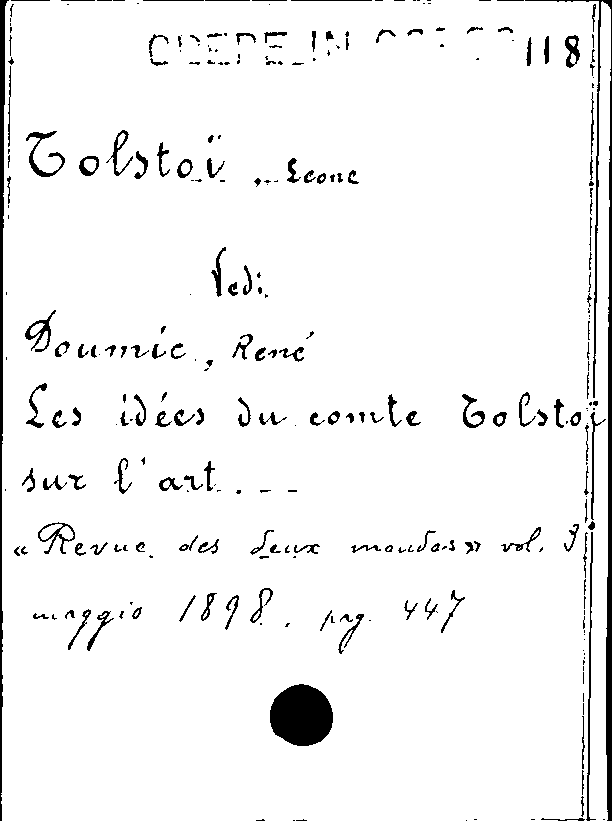 118
Tolstoï, Leone
Vedi
Doumic, René
Les idées du comte Tolstoï
sur l'art...
« Revue des deux mondes » vol. 3
maggio 1898. pag. 447